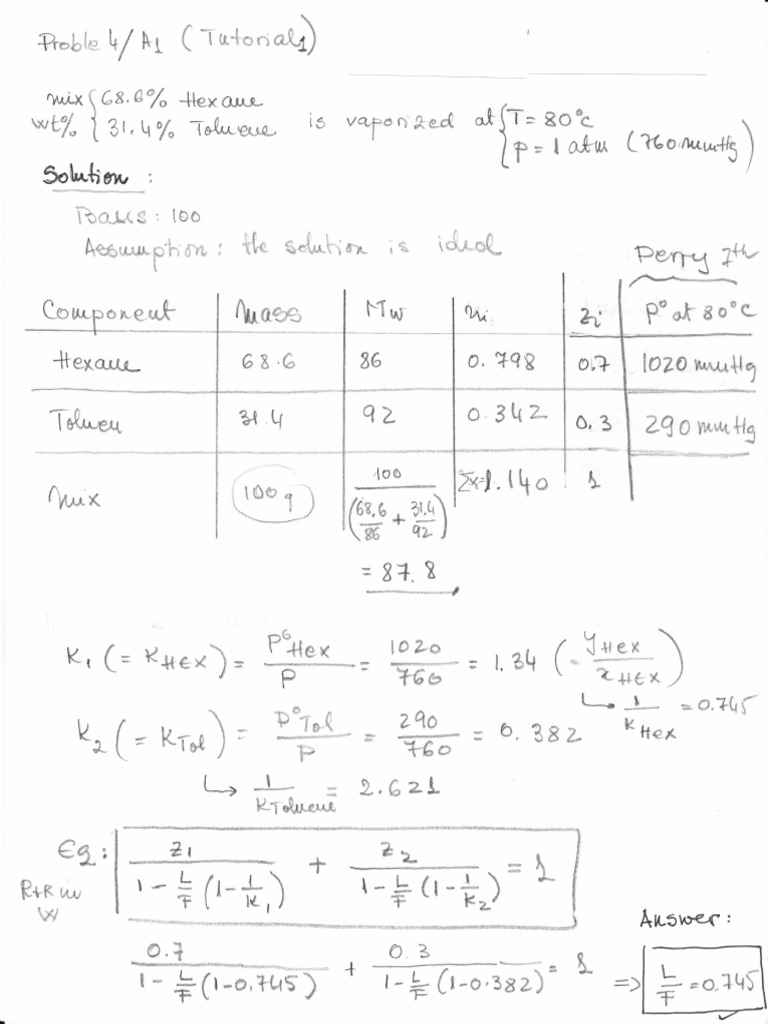 Proble 4/A1 (Tutorial1)
mix { 68.6% Hexane
wt% { 31.4% Toluene is vaporized at { T = 80°C
P = 1 atm (760 mmHg)
Solution :
Basis : 100
Assumption : the solution is ideal
Perry 7th
Component | Mass | Mw | ni | zi | P° at 80°C
Hexane | 68.6 | 86 | 0.798 | 0.7 | 1020 mmHg
Toluen | 31.4 | 92 | 0.342 | 0.3 | 290 mmHg
mix | 100g | 100 / (68,6/86 + 31,4/92) | Σ=1.140 | 1
= 87.8
K1 (= KHEX) = P°Hex / P = 1020 / 760 = 1.34 (= yHex / xHEX)
↳ 1 / KHex = 0.745
K2 (= KTol) = P°Tol / P = 290 / 760 = 0.382
↳ 1 / KToluene = 2.621
Eq: z1 / (1 - L/F (1 - 1/K1)) + z2 / (1 - L/F (1 - 1/K2)) = 1
R+R in
W
Answer:
0.7 / (1 - L/F (1-0.745)) + 0.3 / (1 - L/F (1-0.382)) = 1 => L/F = 0.745